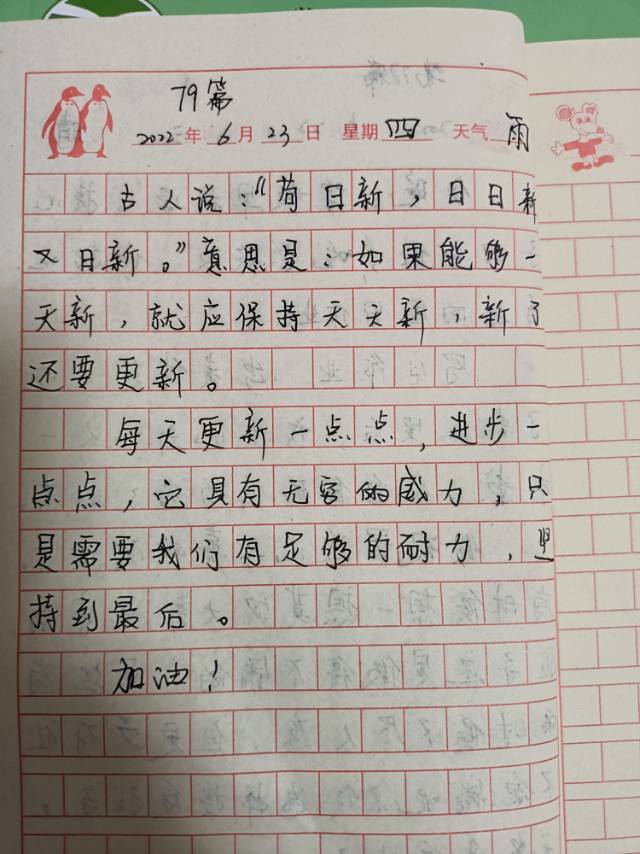 79篇
2022年6月23日 星期四 天气雨
古人说:“苟日新,日日新
又日新。”意思是:如果能够一
天新,就应保持天天新,新了
还要更新。
每天更新一点点,进步一
点点,它具有无穷的威力,只
是需要我们有足够的耐力,坚
持到最后。
加油!